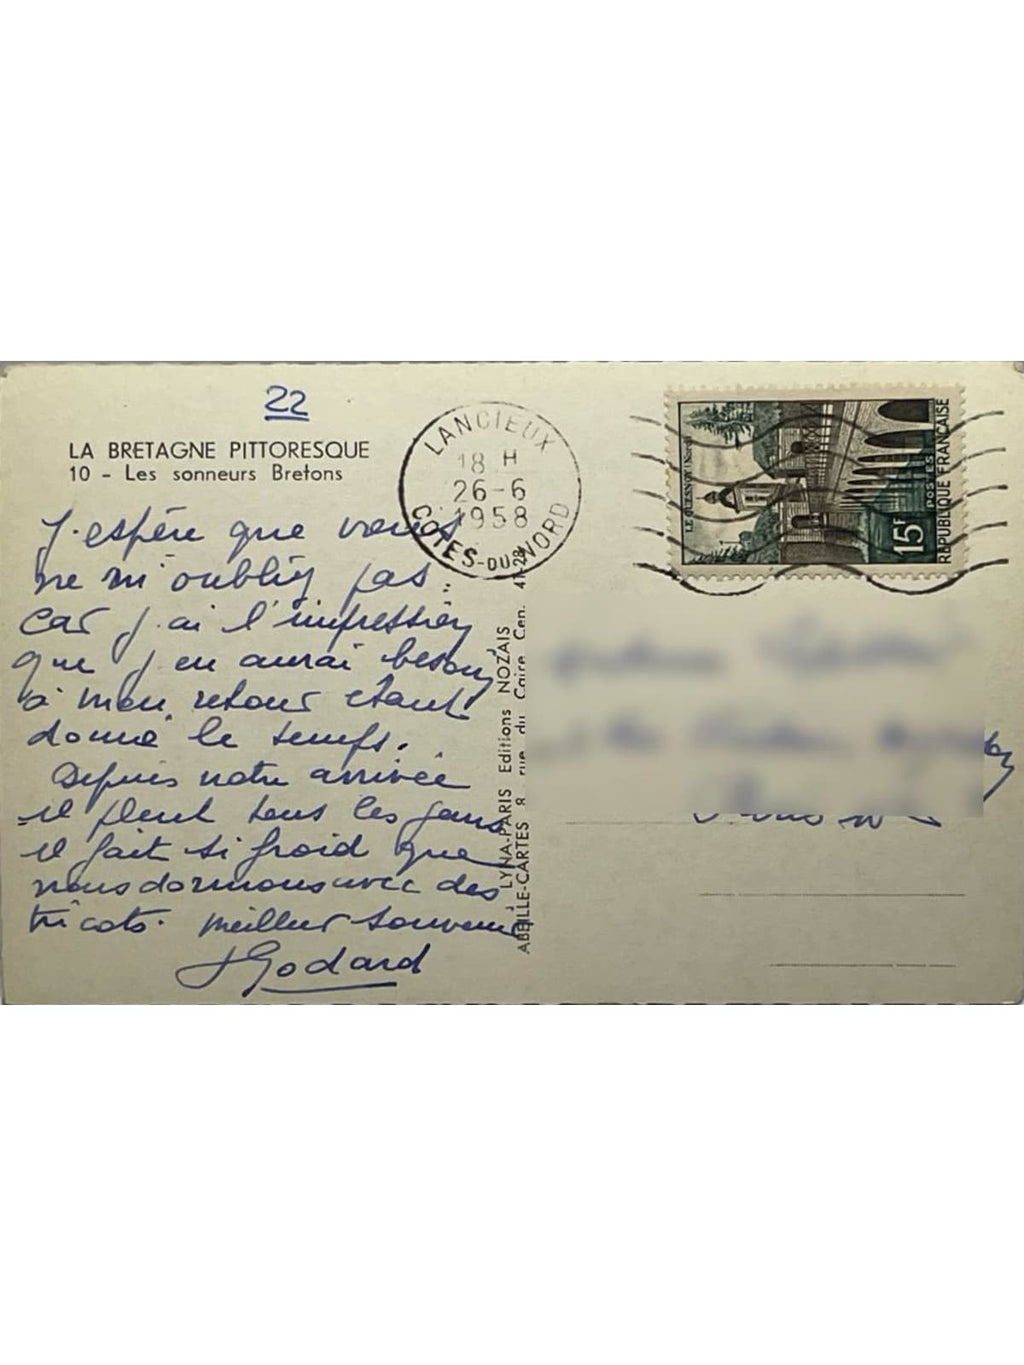 22
LA BRETAGNE PITTORESQUE
10 - Les sonneurs Bretons
J'espère que vous
ne m'oubliez pas.
car j'ai l'impression
que j'en aurai besoin
à mon retour étant
donné le temps.
Depuis notre arrivée
il pleut tous les jours
il fait si froid que
nous dormons avec des
tricots. Meilleur souvenir
J Godard
LANCIEUX
18 H
26-6
1958
COTES-DU-NORD
LYNA-PARIS Editions NOZAIS
ABEILLE-CARTES 8, rue du Caire Cen. 41-28
LE QUESNOY (Nord)
15F
POSTES
REPUBLIQUE FRANÇAISE